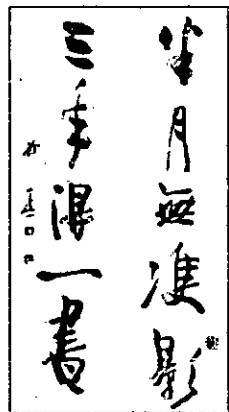 半月無雙影
三年得一書